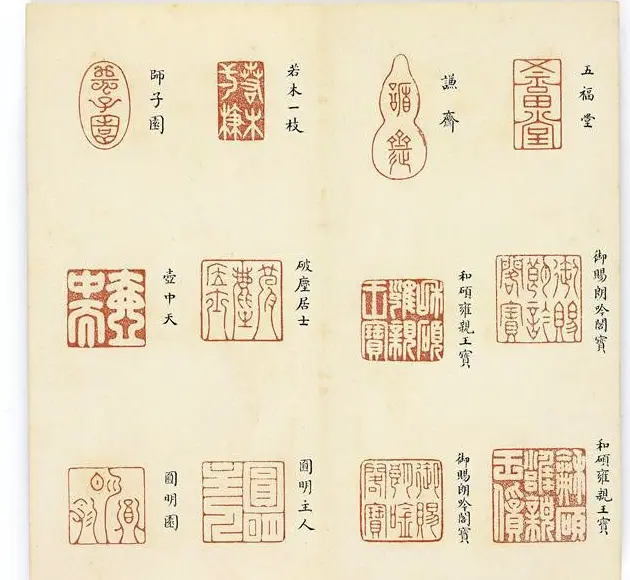 五福堂
謙齋
若木一枝
師子園
御賜朗吟閣寶
和碩雍親王寶
破塵居士
壺中天
和碩雍親王寶
御賜朗吟閣寶
圓明主人
圓明園